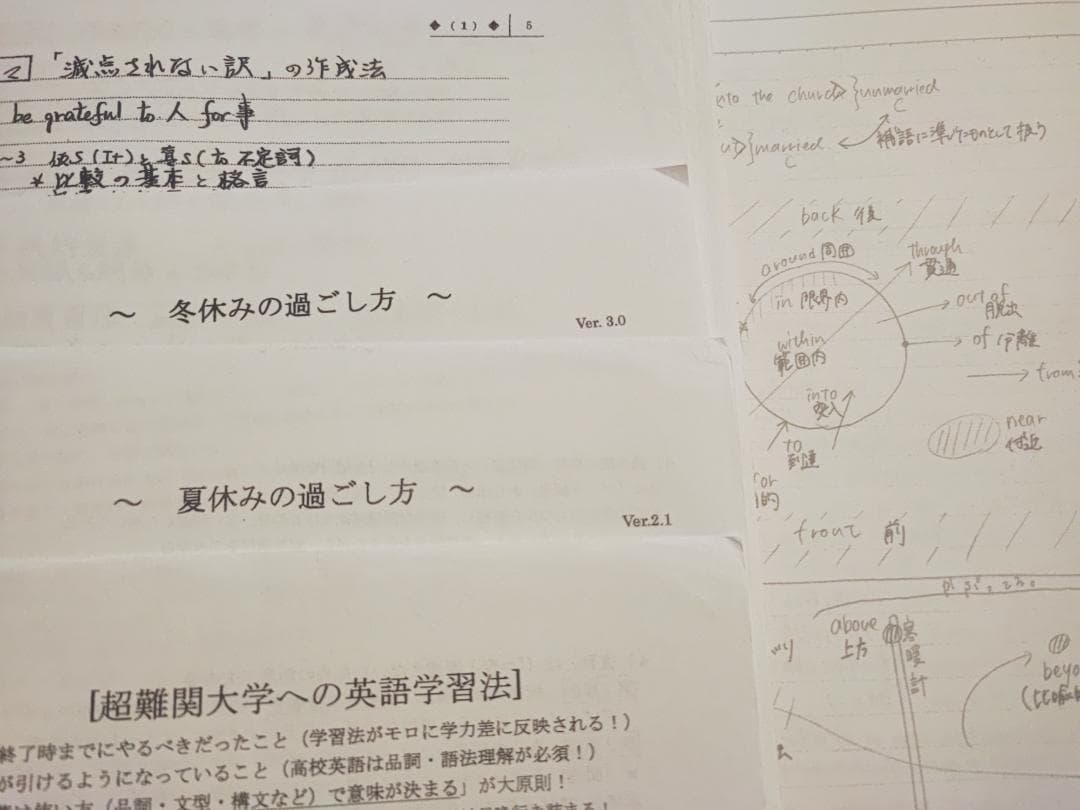 ◆ (1) ◆ 5
2 「減点されない訳」の作成法
be grateful to 人 for事
~3 仮S (It) と真S (to 不定詞)
* 比較の基本と格言
～ 冬休みの過ごし方 ～
Ver. 3.0
～ 夏休みの過ごし方 ～
Ver.2.1
[超難関大学への英語学習法]
終了時までにやるべきだったこと（学習法がモロに学力差に反映される！）
が引けるようになっていること（高校英語は品詞・語法理解が必須！）
使い方（品詞・文型・構文など）で意味が決まる」が大原則！
into the church }unmarried
C
}married
C
補語に準じたものとして扱う
back 後
around 周囲
through
貫通
in 限界内
out of
脱出
within
範囲内
of 分離
from
into
突入
near
付近
to
到達
for
的
front 前
above
上方
寒暖計
beyo